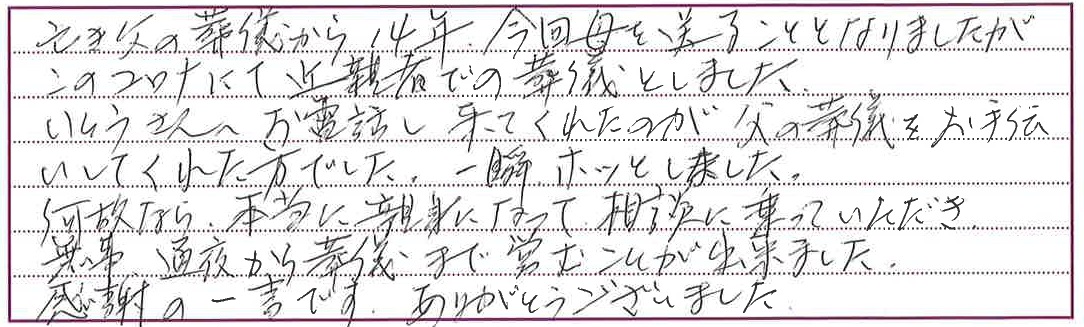 亡き父の葬儀から14年、今回母を送ることとなりましたが
このコロナにて近親者での葬儀としました。
いとうさんへお電話し来てくれたのが父の葬儀をお手伝
いしてくれた方でした。一瞬、ホッとしました。
何故なら、本当に親身になって、相談に乗っていただき、
無事、通夜から葬儀まで営むことが出来ました。
感謝の一言です。ありがとうございました。